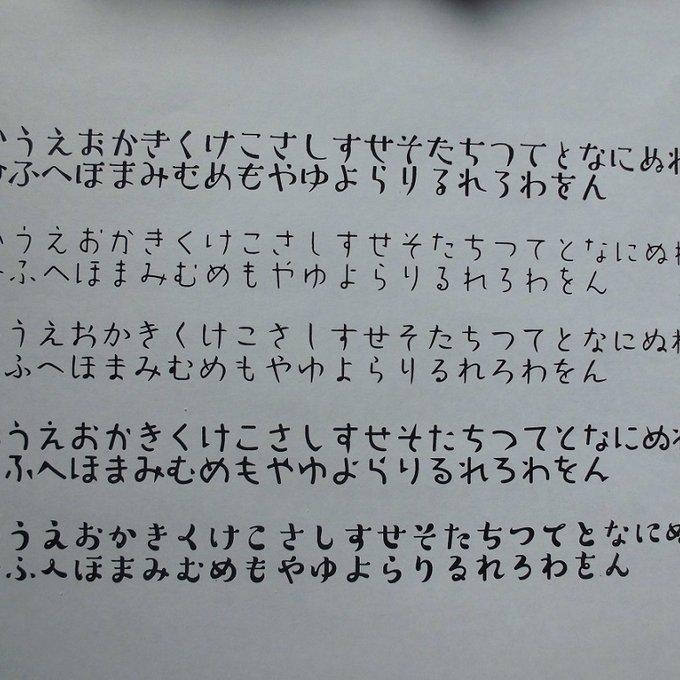 うえおかきくけこさしすせそたちつてとなにぬ
ふへほまみむめもやゆよらりるれろわをん
うえおかきくけこさしすせそたちつてとなにぬ
ふへほまみむめもやゆよらりるれろわをん
うえおかきくけこさしすせそたちつてとなにぬ
ふへほまみむめもやゆよらりるれろわをん
うえおかきくけこさしすせそたちつてとなにぬ
ふへほまみむめもやゆよらりるれろわをん
うえおかきくけこさしすせそたちつてとなにぬ
ふへほまみむめもやゆよらりるれろわをん